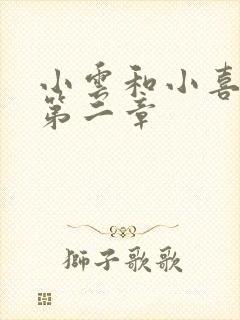 小雲和小喜
第二章
獅子歌歌